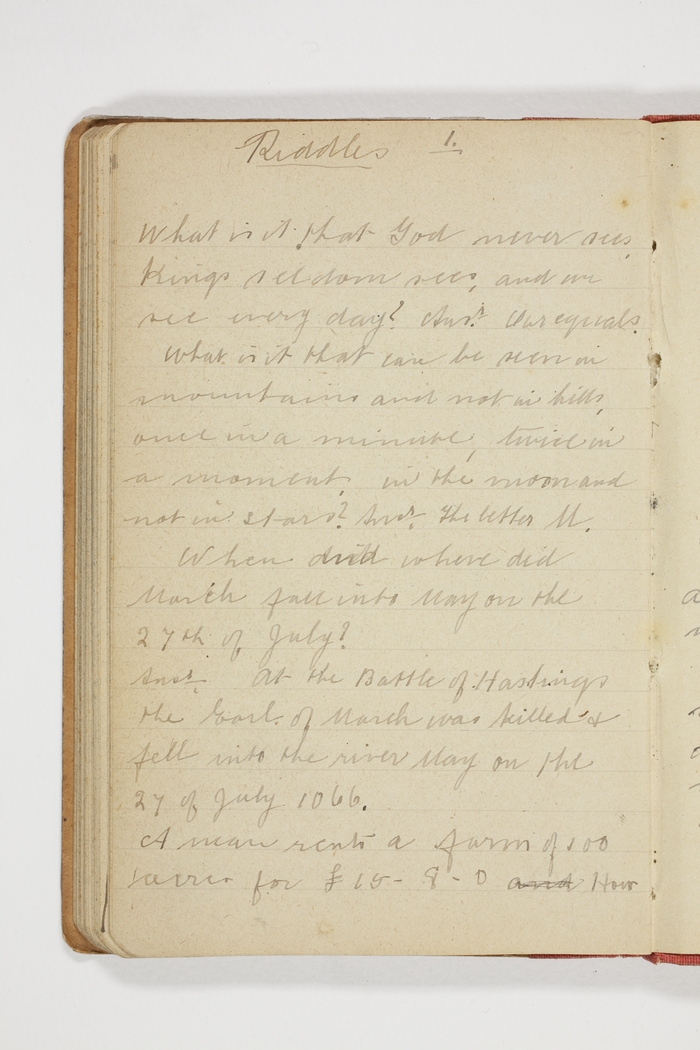 Riddles 1.
What is it that God never sees,
Kings seldom sees, and we
see every day? Ansr. Our equals.
What is it that can be seen in
mountains and not in hills,
once in a minute, twice in
a moment, in the moon and
not in stars? Ansr. The letter M.
When did where did
March fall into May on the
27th of July?
Ansr. At the Battle of Hastings
the Earl. of March was killed &
fell into the river May on the
27 of July 1066.
A man rents a farm of 100
acres for £15-8-0 and How